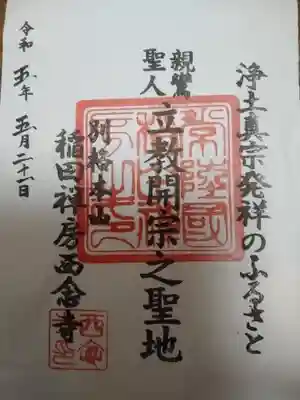 浄土真宗発祥のふるさと
親鸞聖人
立教開宗之聖地
別格本山
稲田禅房西念寺
令和五年五月二十一日